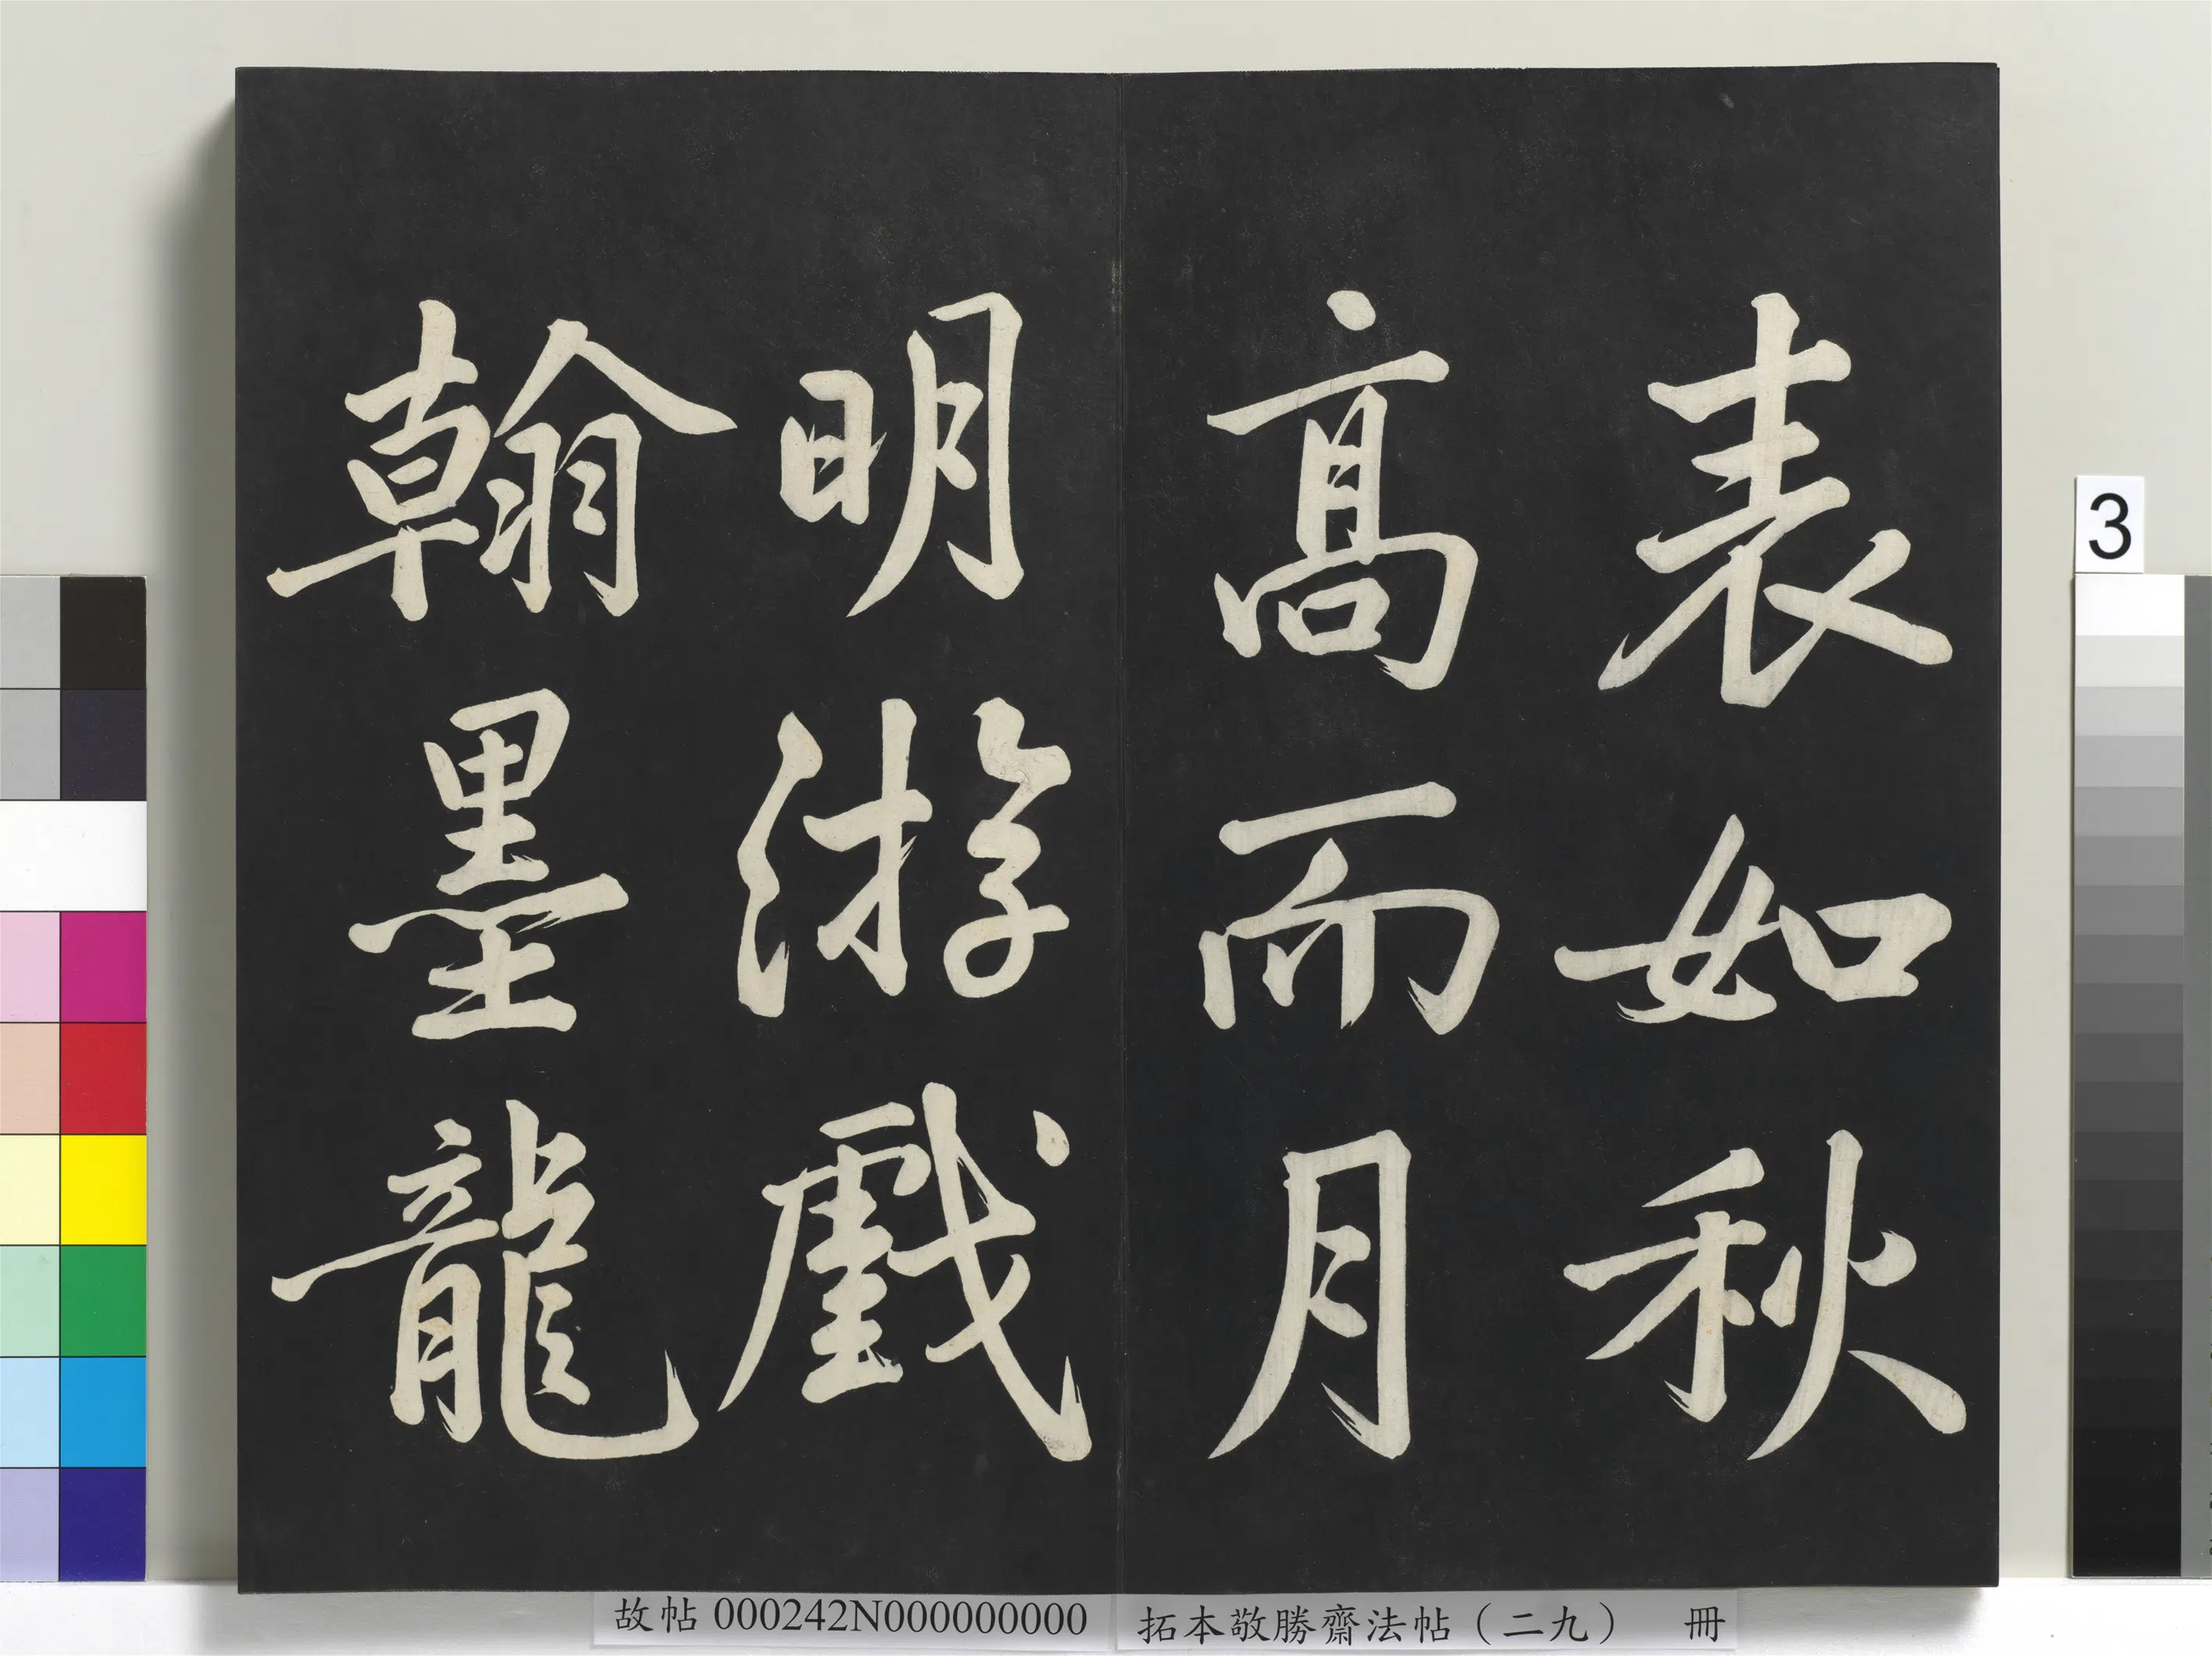 表如秋
高而月
明游戲
翰墨龍
3
故帖 000242N000000000
拓本敬勝齋法帖（二九） 冊